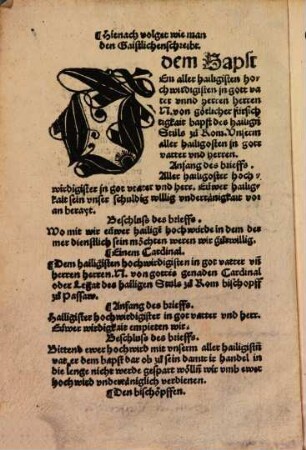 ¶ Hienach volget wie man
den Gaistlichen schreibt.
dem Bapst
En aller hailigisten hoch
wirdigisten in gott vat
ter vnnd herren herren
N. von götlicher fürsich
tigkait bapst des hailigē
Stůls zů Rom. Vnserm
aller hailigosten in gott
vatter vnd herren.
Anfang des brieffs.
Aller hailigoster hoch
wirdigister in got vatter vnd herr. Eüwer hailig
kait sein vnser schuldig willig vndertänigkait vor
an berayt.
Beschluß des brieffs.
Wo mit wir eüwer hailigē hochwirde in dem der
mer dienstlich sein möchten weren wir gůtwillig.
¶ Einem Cardinal.
¶ Dem hailigisten hochwirdigisten in got vatter vñ
herren herren. N. von gottes genaden Cardinal
oder Legat des hailigen Stuls zů Rom bischopff
zů Passaw.
¶ Anfang des brieffs.
Hailigister hochwirdigister in got vatter vnd herr.
Eüwer wirdigkait empieten wir.
Beschluß des brieffs.
Bittend ewer hochwird mit vnserm aller hailigistē
vatter dem bapst dar ob zů sein damit ir handel in
die lenge nicht werde gespart wöllē wir vmb ewer
hochwird vnderäniglich verdienen.
¶ Den bischöpffen.